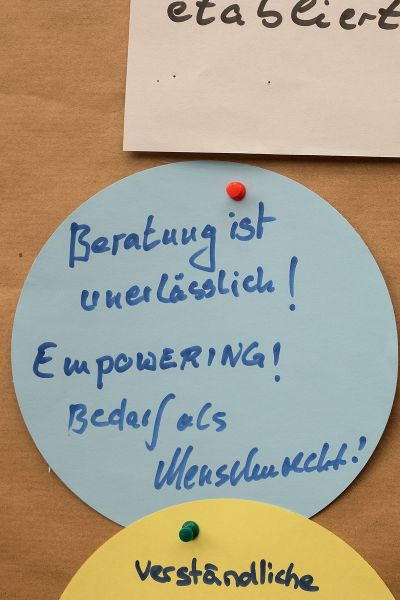 etabliert
Beratung ist
unerlässlich!
EMPOWERING!
Bedarf als
Menschenrecht!
verständliche